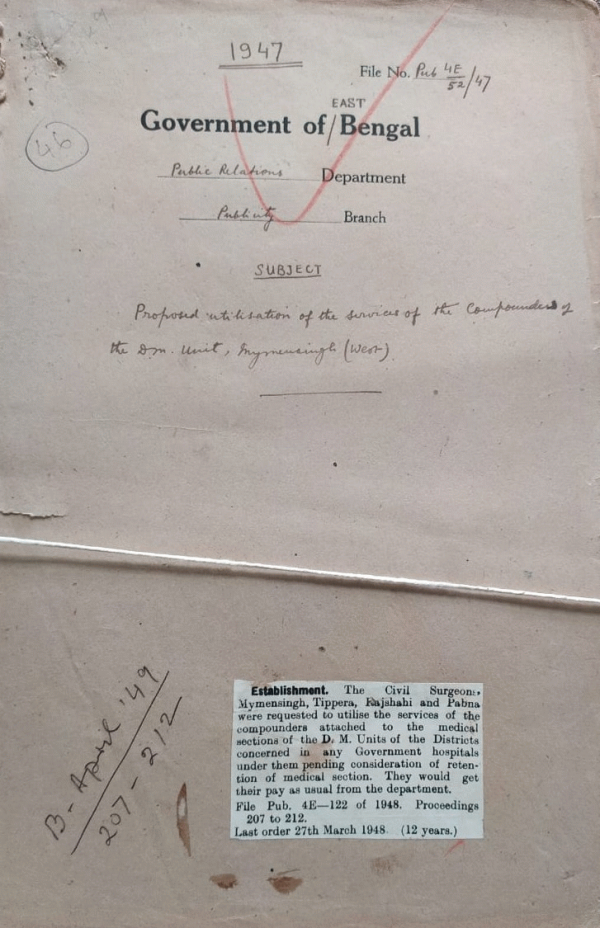 1947
File No. Pub 4E/52/47
46
EAST
Government of/Bengal
Public Relations Department
Publicity Branch
SUBJECT
Proposed utilisation of the services of the Compounders of
the D.M. Unit, Mymensingh (West)
B - April '49
207 - 212
Establishment. The Civil Surgeons,
Mymensingh, Tippera, Rajshahi and Pabna
were requested to utilise the services of the
compounders attached to the medical
sections of the D. M. Units of the Districts
concerned in any Government hospitals
under them pending consideration of reten-
tion of medical section. They would get
their pay as usual from the department.
File Pub. 4E—122 of 1948. Proceedings
207 to 212.
Last order 27th March 1948. (12 years.)